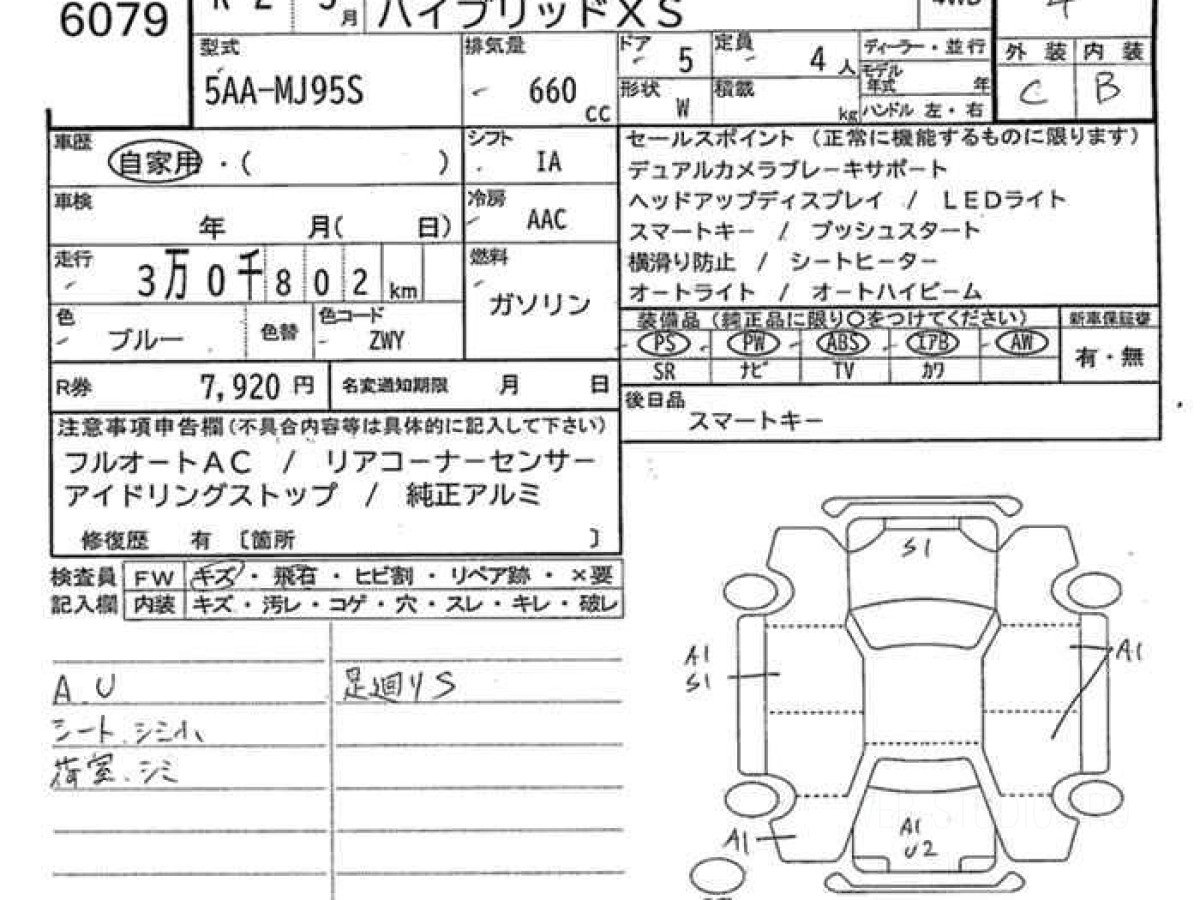 6079
R 2 5月 ハイブリッドXS 4WD 4
型式 5AA-MJ95S
排気量 660 cc
ドア 5
定員 4人
形状 W
積載 kg
ディーラー・並行
モデル年式 年
ハンドル 左・右
外装 内装
C B
車歴 自家用・( )
シフト IA
車検 年 月( 日)
冷房 AAC
走行 3万0千802km
燃料 ガソリン
色 ブルー 色替 色コード ZWY
R券 7,920円 名変通知期限 月 日
セールスポイント (正常に機能するものに限ります)
デュアルカメラブレーキサポート
ヘッドアップディスプレイ / LEDライト
スマートキー / プッシュスタート
横滑り防止 / シートヒーター
オートライト / オートハイビーム
装備品(純正品に限り○をつけてください) 新車保証書
PS PW ABS エアB AW 有・無
SR ナビ TV カワ
後日品
スマートキー
注意事項申告欄(不具合内容等は具体的に記入して下さい)
フルオートAC / リアコーナーセンサー
アイドリングストップ / 純正アルミ
修復歴 有 〔箇所 〕
検査員 FW キズ・飛石・ヒビ割・リペア跡・×要
記入欄 内装 キズ・汚レ・コゲ・穴・スレ・キレ・破レ
A.U 足廻りS
シート.シミ小
荷室.シミ
S1
A1
S1
A1
A1
A1
U2